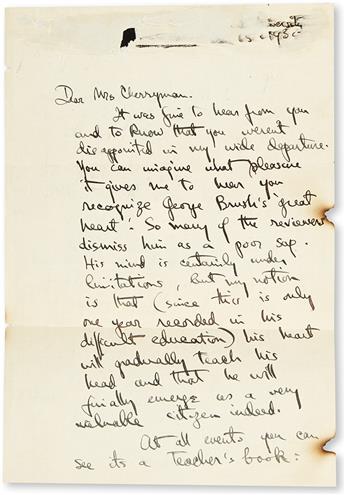 Dear Mrs Cherryman.
It was fine to hear from you
and to know that you weren't
disappointed in my wide departure.
You can imagine what pleasure
it gives me to hear you
recognize George Brush's great
heart: So many of the reviewers
dismiss him as a poor sap.
His mind is certainly under
limitations, but my notion
is that (since this is only
one year recorded in his
difficult education) his heart
will gradually teach his
head and that he will
finially emerge as a very
valuable citizen indeed.
At all events you can
see its a Teacher's book: